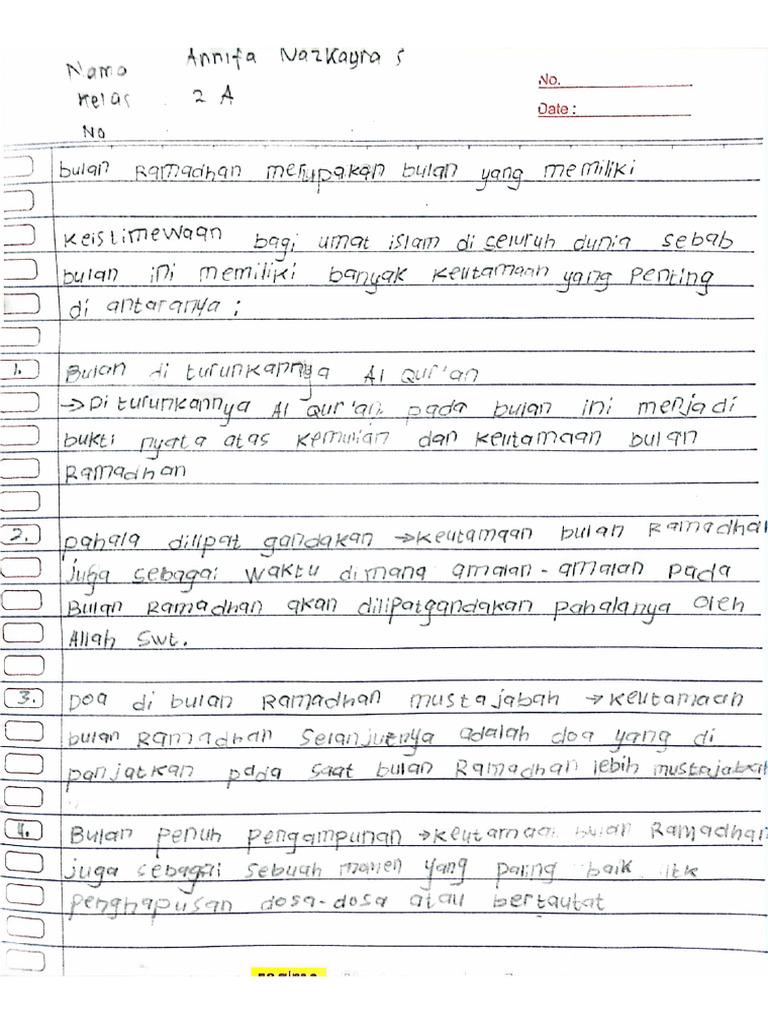 Nama Annifa Nazkayra S
Kelas : 2 A
No
No.
Date :
bulan Ramadhan merupakan bulan yang memiliki
Keistimewaan bagi umat islam di seluruh dunia sebab
bulan ini memiliki banyak keutamaan yang penting
di antaranya :
1. Bulan di turunkannya Al Qur'an
→ Di turunkannya Al Qur'an pada bulan ini menjadi
bukti nyata atas kemulian dan keutamaan bulan
Ramadhan
2. pahala dilipat gandakan → keutamaan bulan Ramadhan
juga sebagai waktu dimana amalan-amalan pada
Bulan Ramadhan akan dilipatgandakan pahalanya oleh
Allah Swt.
3. Doa di bulan Ramadhan mustajabah → keutamaan
bulan Ramadhan selanjutnya adalah doa yang di
panjatkan pada saat bulan Ramadhan lebih mustajabah
4. Bulan penuh pengampunan → keutamaan bulan Ramadhan
juga sebagai sebuah momen yang paling baik utk
penghapusan dosa-dosa atau bertautat